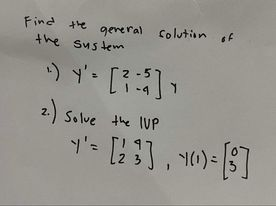 Find the general solution of
the system
1.) y' = [2 -5
1 -4] y
2.) Solve the IVP
y' = [1 4
2 3], y(1) = [0
3]